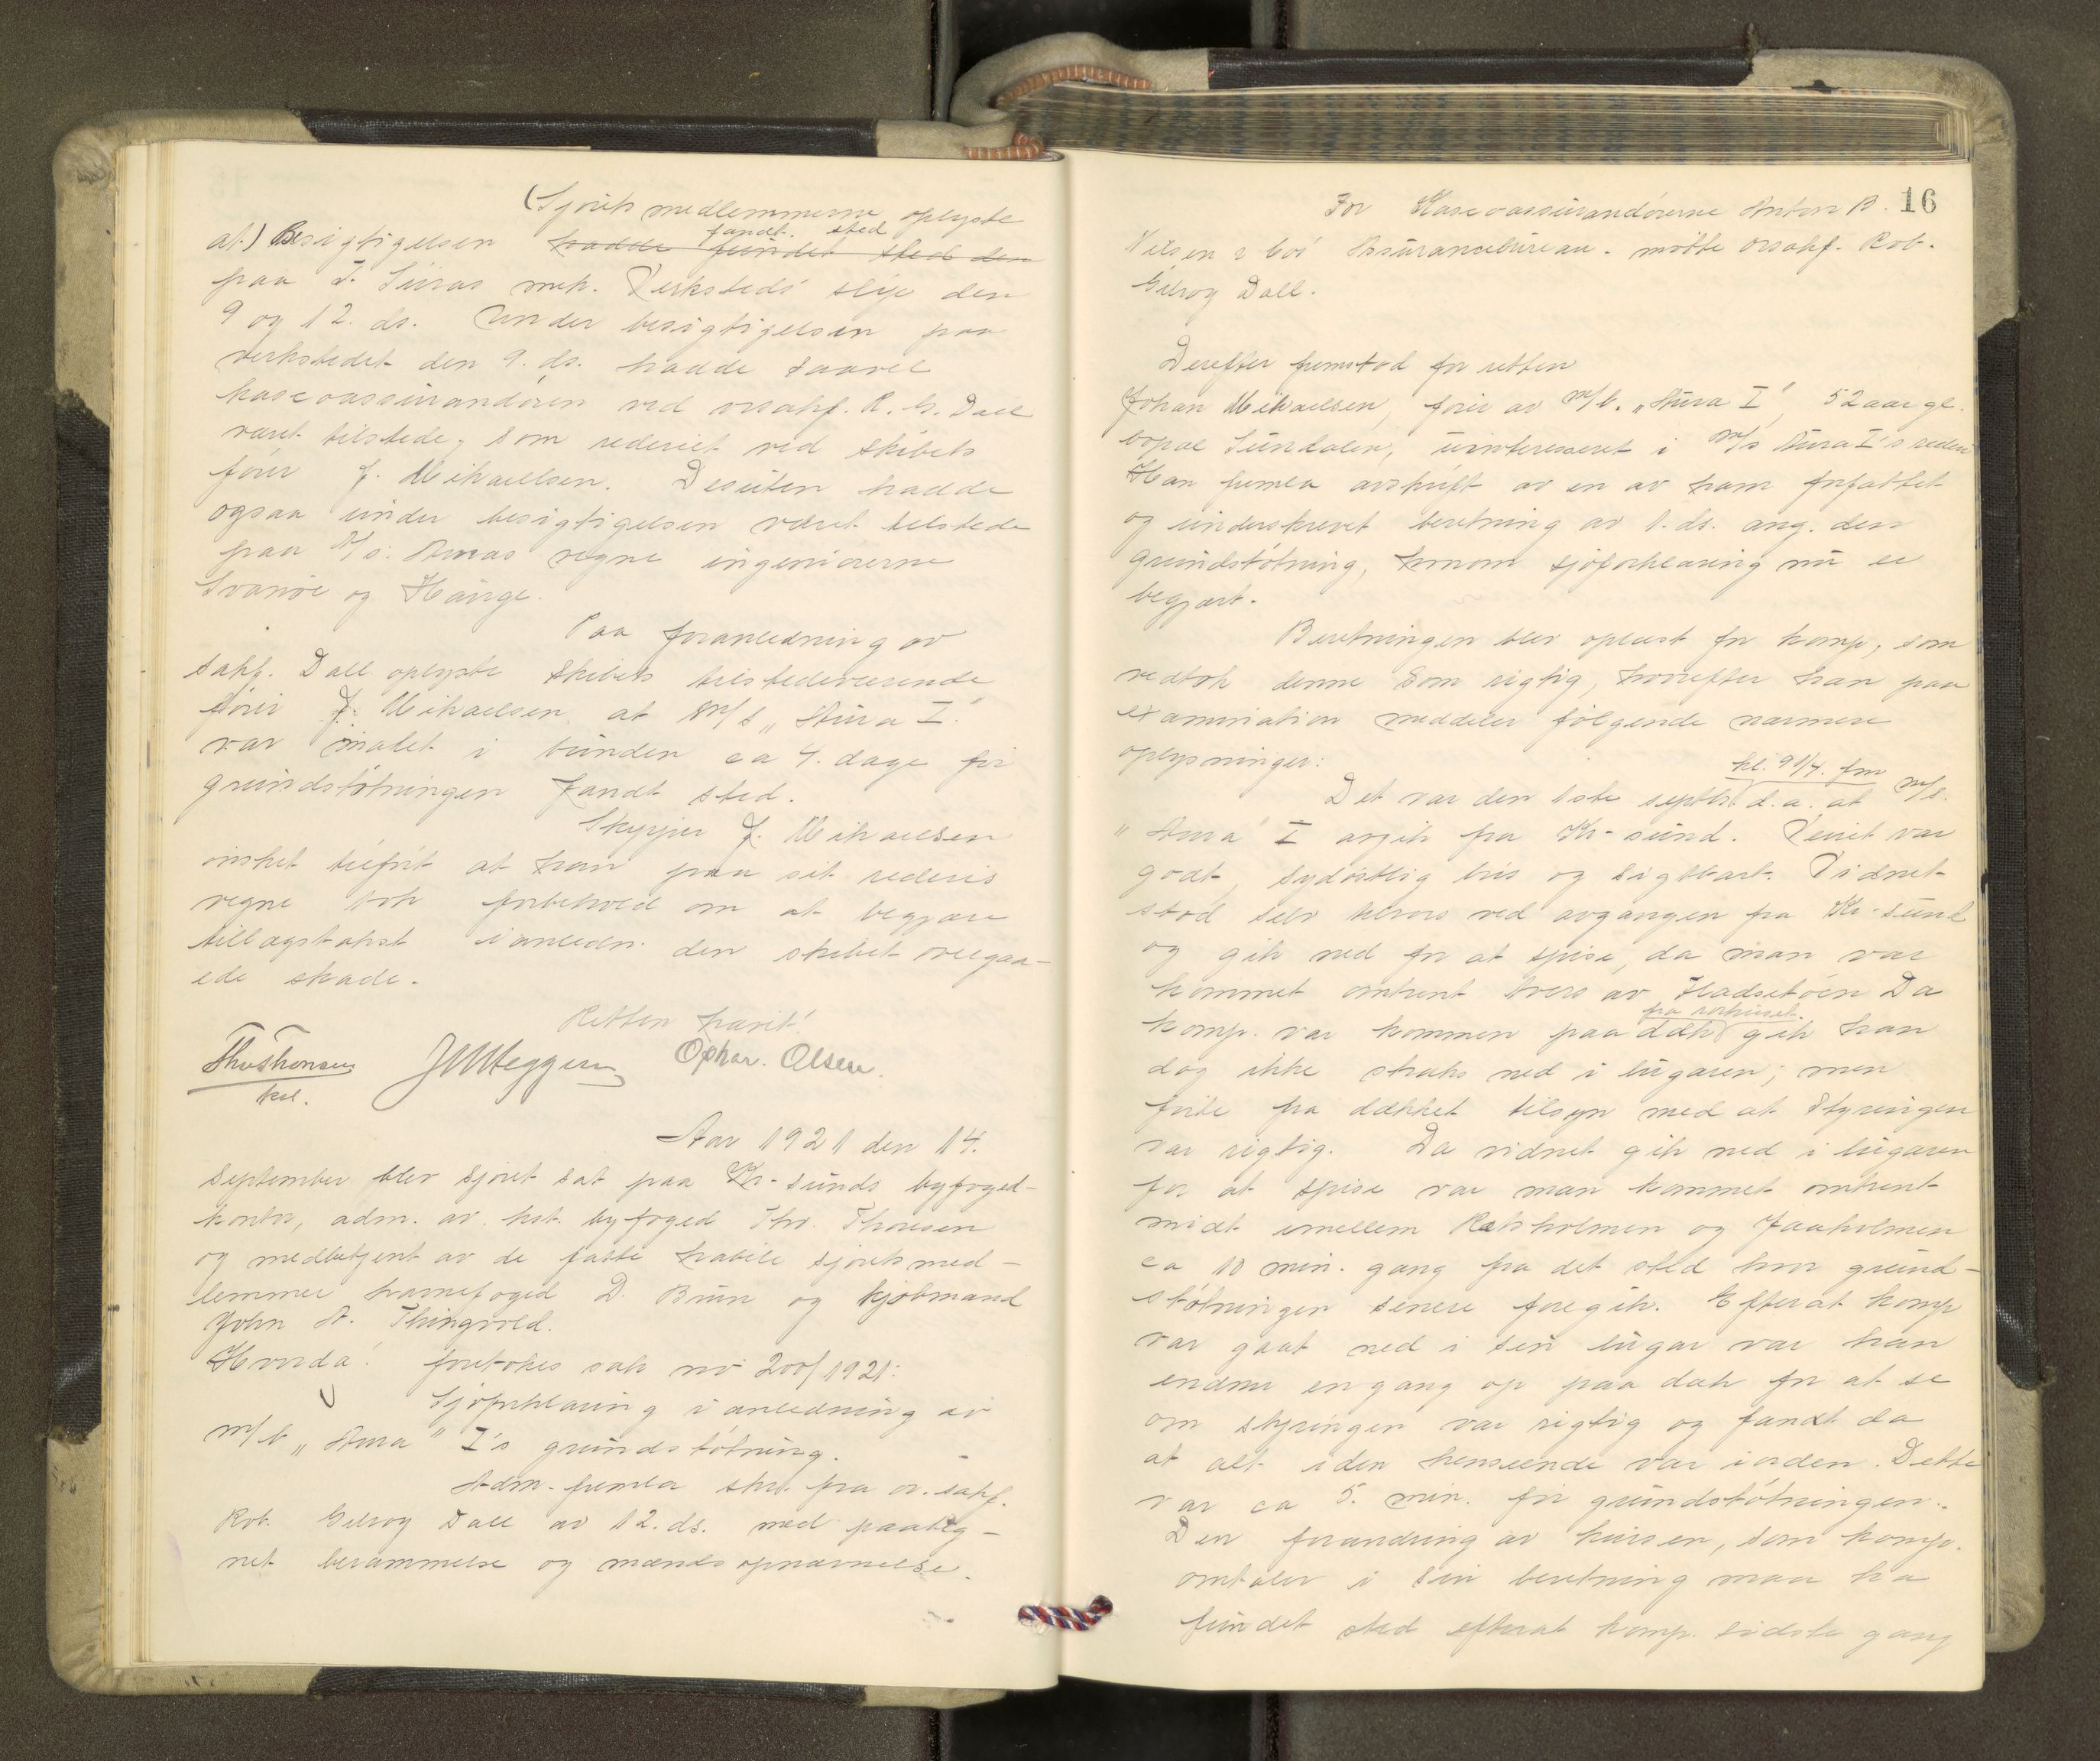 (Sjørets medlemmerne oplyste
at) Besigtigelsen hadde fundet sted den
fandt sted
paa J. Suras mek. Verksteds slip den
9 og 12. ds. Under besigtigelsen paa
verkstedet den 9. ds. hadde saavel
kascoassurandøren ved orsakf. R. G. Dall
været tilstede, som rederiet ved skibets
fører J. Mikaelsen. Desuten hadde
ogsaa under besigtigelsen været tilstede
paa A/s. Auras vegne ingeniørerne
Svanøe og Hauge.
Paa foranledning av
sakf. Dall oplyste skibets tilstedeværende
fører J. Mikaelsen, at M/s „Aura I."
var malet i bunden ca 4. dage før
grundstøtningen fandt sted.
Skipper J. Mikaelsen
ønsket tilført at han paa sit rederis
vegne tok forbehold om at begjære
tillægstakst i anledn. den skibet overgaa-
ede skade.
Retten hævet!
Thv Thoresen J M Meggen Ophar. Olsen.
kst.
Aar 1921 den 14.
september blev sjøret sat paa Kr-sunds byfoged-
kontor, adm. av kst. byfoged Thv. Thoresen
og medbetjent av de faste habile sjøretsmed-
lemmer havnefoged D. Brun og kjøbmand
John A. Thingvold.
Hvorda! foretokes sak no 200/1921:
Sjøforklaring i anledning av
m/b „Aura" I's grundstøtning.
Adm. fremla skr. fra or. sakf.
Rob. Gilroy Dall av 12. ds. med paateg-
net berammelse og mandsopnævnelse.
16
For Kascoassurandørerne Anton B.
Nilsen & Cos Assurancebureau. møtte orsakf. Rob.
Gilroy Dall.
Derefter fremstod for retten
Johan Mikaelsen, fører av M/b. „Aura I", 52 aar gl.
bopæl Sundalen, uinteresseret i M/s Aura I's rederi
Han fremla avskrift av en av ham forfattet
og underskrevet beretning av 1. ds. ang. den
grundstøtning, hvorom sjøforklaring nu er
begjært.
Beretningen blev oplæst for komp, som
vedtok denne som rigtig, hvorefter han paa
examination meddeler følgende nærmere
oplysninger:
kl. 9 1/4. fm
Det var den 1ste septbr. d.a. at m/s.
„Aura" I avgik fra Kr-sund. Veiret var
godt, sydøstlig bris og sigtbart. Vidnet
stod selv tilrors ved avgangen fra Kr-sund
og gik ned for at spise, da man var
kommet omtrent tvers av Hadsetøen Da
fra rorhuset.
komp. var kommen paa dæk gik han
dog ikke straks ned i lugaren; men
førte fra dækket tilsyn med at styringen
var rigtig. Da vidnet gik ned i lugaren
for at spise var man kommet omtrent
midt imellem Ratsholmen og Jaaholmen
ca 10 min. gang fra det sted hvor grund-
støtningen senere foregik. Efterat komp
var gaat ned i sin lugar var han
endnu en gang op paa dæk for at se
om styringen var rigtig og fandt da
at alt i den henseende var iorden. Dette
var ca 5. min. før grundstøtningen.
Den forandring av kursen, som komp.
omtaler i sin beretning maa ha
fundet sted efterat komp. sidste gang